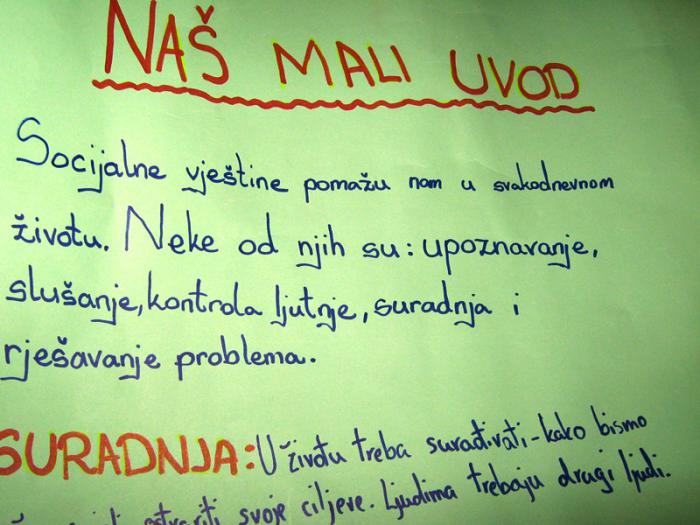 NAŠ MALI UVOD
Socijalne vještine pomažu nam u svakodnevnom
životu. Neke od njih su: upoznavanje,
slušanje, kontrola ljutnje, suradnja i
rješavanje problema.
SURADNJA: U životu treba surađivati - kako bismo
svoje ciljeve. Ljudima trebaju drugi ljudi.